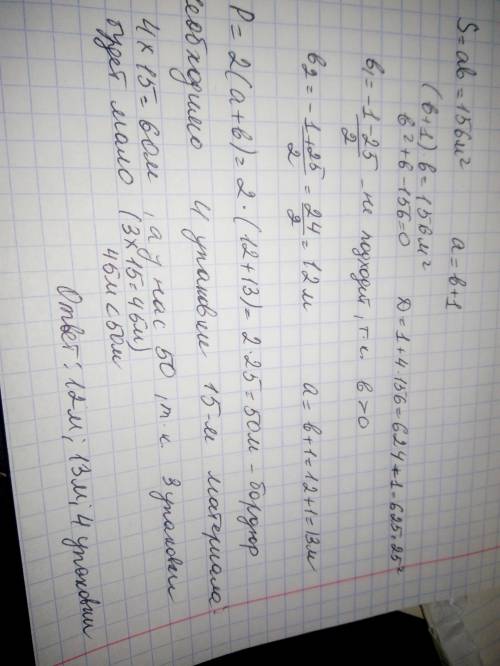 S = ab = 156м² a = b+1
(b+1) b = 156м²
b² + b - 156 = 0 D = 1+4·156 = 624+1 = 625 = 25²
b₁ = (-1-25)/2 - не подходит, т.к. b > 0
b₂ = (-1+25)/2 = 24/2 = 12м a = b+1 = 12+1 = 13м
P = 2(a+b) = 2·(12+13) = 2·25 = 50м - бордюр
необходимо 4 упаковки 15-м материала:
4×15 = 60м, а у нас 50, т.к. 3 упаковки
будет мало (3×15=45м)
45м < 50м
Ответ: 12м; 13м; 4 упаковки